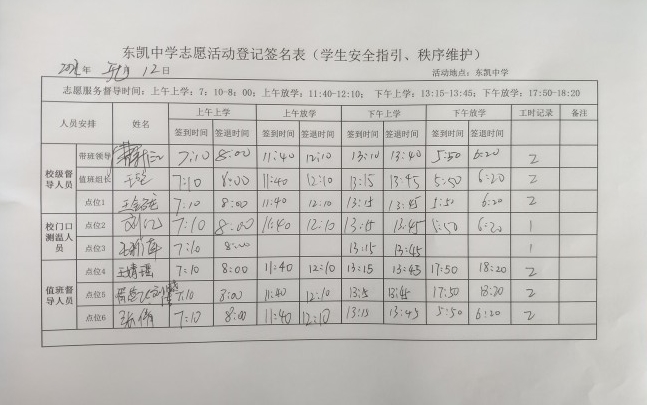 东凯中学志愿活动登记签名表（学生安全指引、秩序维护）
年 月 12日 活动地点：东凯中学
志愿服务督导时间：上午上学：7：10~8：00；上午放学：11:40-12:10； 下午上学：13:15-13:45；下午放学：17:50-18:20
人员安排 姓名 上午上学 上午放学 下午上学 下午放学 工时记录 备注
签到时间 签退时间 签到时间 签退时间 签到时间 签退时间 签到时间 签退时间
校级督导人员 带班领导 7:10 8:00 11:40 12:10 13:10 13:40 5:50 6:20 2
值班组长 7:10 8:00 11:40 12:10 13:15 13:45 5:50 6:20 2
点位1 7:10 8:00 11:40 12:10 13:15 13:45 5:50 6:20 2
校门口测温人员 点位2 7:10 8:00 11:40 12:10 13:15 13:45 5:50 6:20 1
点位3 7:10 8:00 13:15 13:45 1
值班督导人员 点位4 王婧瑶 7:10 8:00 11:40 12:10 13:15 13:45 17:50 18:20 2
点位5 7:10 8:00 11:40 12:10 13:15 13:45 17:50 18:20 2
点位6 7:10 8:00 11:40 12:10 13:15 13:45 5:50 6:20 2